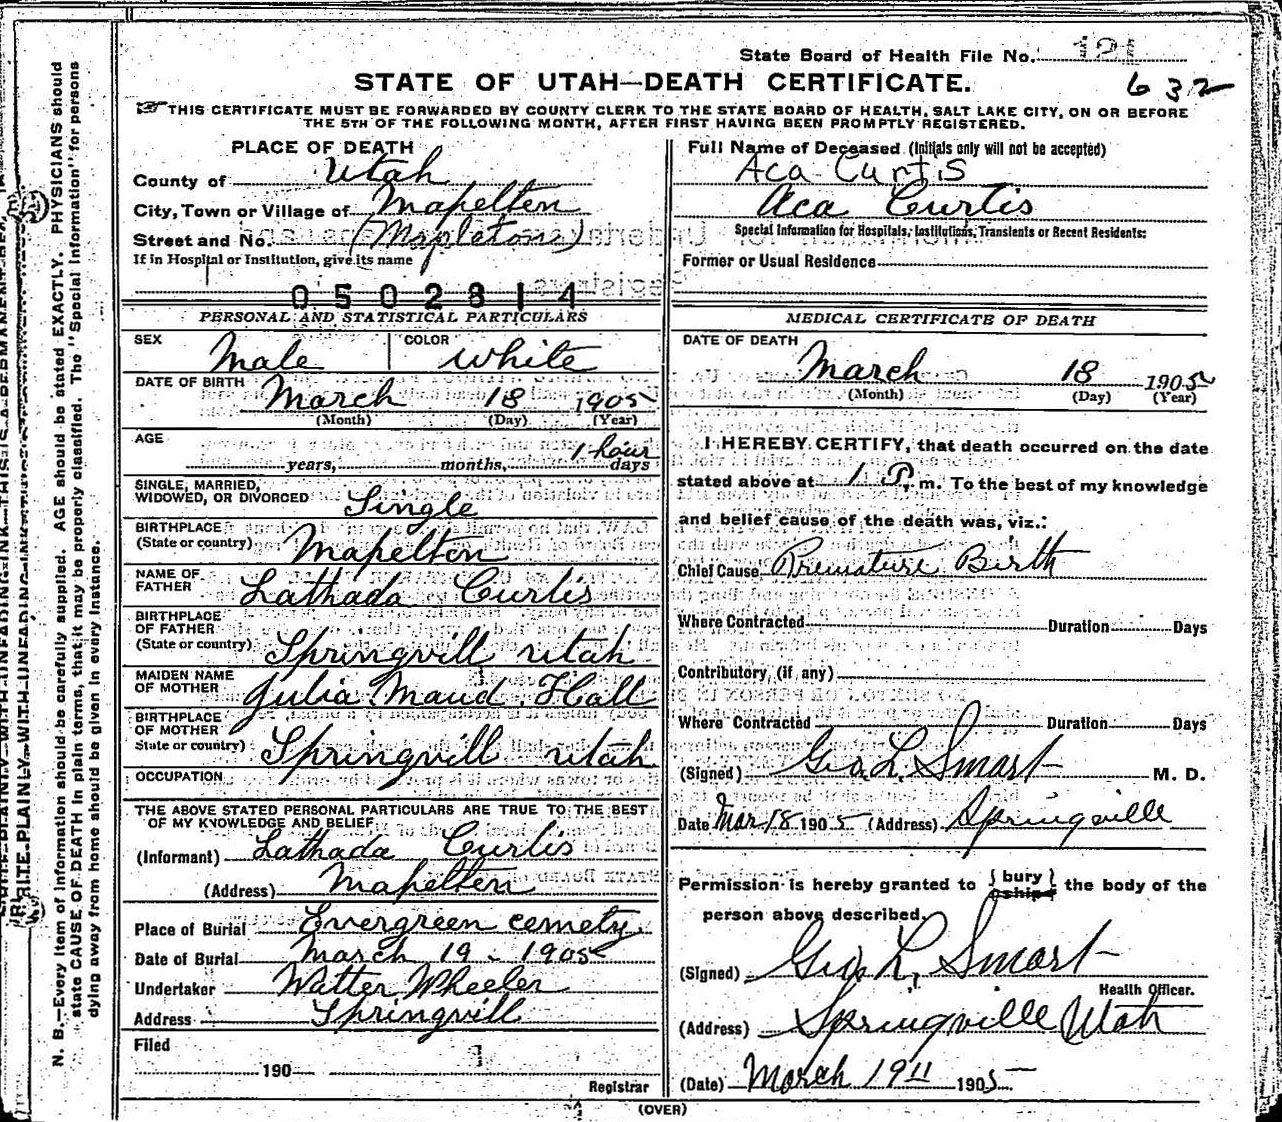 State Board of Health File No. 121
632
STATE OF UTAH—DEATH CERTIFICATE.
THIS CERTIFICATE MUST BE FORWARDED BY COUNTY CLERK TO THE STATE BOARD OF HEALTH, SALT LAKE CITY, ON OR BEFORE
THE 5TH OF THE FOLLOWING MONTH, AFTER FIRST HAVING BEEN PROMPTLY REGISTERED.
PLACE OF DEATH
County of Utah
City, Town or Village of Mapelton
Street and No. (Mapleton)
If in Hospital or Institution, give its name
0502814
PERSONAL AND STATISTICAL PARTICULARS
SEX Male COLOR White
DATE OF BIRTH March 18 1905
(Month) (Day) (Year)
AGE 1 hour
years, months, days
SINGLE, MARRIED,
WIDOWED, OR DIVORCED Single
BIRTHPLACE
(State or country) Mapelton
NAME OF
FATHER Lathada Curtis
BIRTHPLACE
OF FATHER
(State or country) Springvill Utah
MAIDEN NAME
OF MOTHER Julia Maud Hall
BIRTHPLACE
OF MOTHER
State or country) Springvill Utah
OCCUPATION
THE ABOVE STATED PERSONAL PARTICULARS ARE TRUE TO THE BEST
OF MY KNOWLEDGE AND BELIEF
(Informant) Lathada Curtis
(Address) Mapelton
Place of Burial Evergreen cemety
Date of Burial March 19 - 1905
Undertaker Watter Wheeler
Address Springvill
Filed
190
Registrar
Full Name of Deceased (Initials only will not be accepted)
Aca Curtis
Aca Curtis
Special Information for Hospitals, Institutions, Transients or Recent Residents:
Former or Usual Residence
MEDICAL CERTIFICATE OF DEATH
DATE OF DEATH
March 18 1905
(Month) (Day) (Year)
I HEREBY CERTIFY, that death occurred on the date
stated above at 1 P. m. To the best of my knowledge
and belief cause of the death was, viz.:
Chief Cause Premature Birth
Where Contracted Duration Days
Contributory, (if any)
Where Contracted Duration Days
(Signed) Geo. L. Smart M. D.
Date Mar 18 1905 (Address) Springville
Permission is hereby granted to { bury } { ship } the body of the
person above described.
(Signed) Geo. L. Smart
Health Officer.
(Address) Springville Utah
(Date) March 19 1905
(OVER)
N. B.—Every item of information should be carefully supplied. AGE should be stated EXACTLY. PHYSICIANS should
state CAUSE OF DEATH in plain terms, that it may be properly classified. The "Special Information" for persons
dying away from home should be given in every instance.